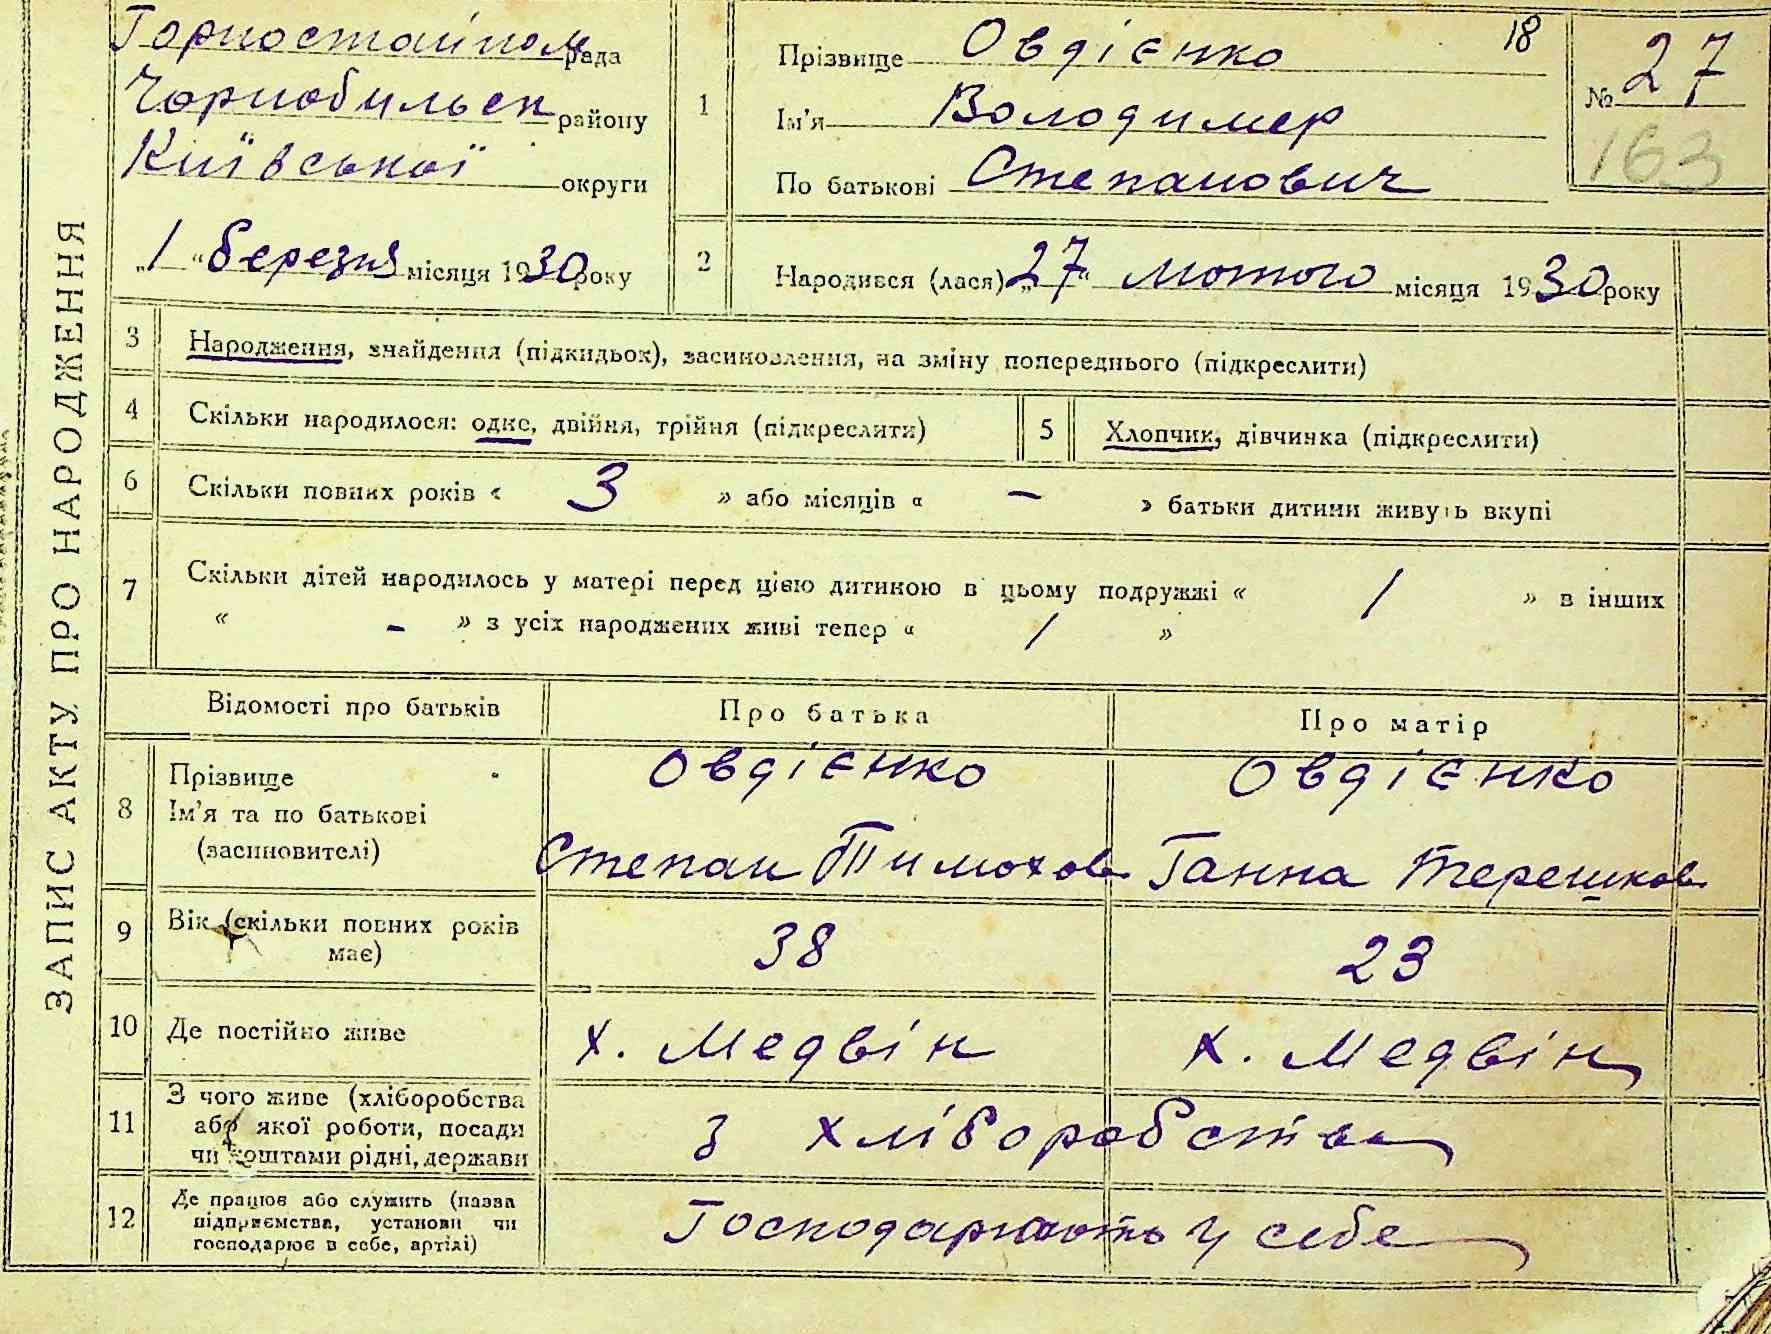 ЗАПИС АКТУ ПРО НАРОДЖЕННЯ
Горностайпом рада
Чорнобильск району
Київської округи
„1“ березня місяця 1930 року
1
Прізвище Овдієнко
Ім'я Володимер
По батькові Степанович
18
№ 27
163
2
Народився (лася) „27“ лютого місяця 1930 року
3 Народження, знайдення (підкидьок), засиновлення, на зміну попереднього (підкреслити)
4 Скільки народилося: одне, двійня, трійня (підкреслити)
5 Хлопчик, дівчинка (підкреслити)
6 Скільки повних років « 3 » або місяців « – » батьки дитини живуть вкупі
7 Скільки дітей народилось у матері перед цією дитиною в цьому подружжі « 1 » в інших
« – » з усіх народжених живі тепер « 1 »
Відомості про батьків Про батька Про матір
8 Прізвище
Ім'я та по батькові
(засиновителі)
Овдієнко
Степан Тимохов
Овдієнко
Ганна Терешков
9 Вік (скільки повних років
має)
38
23
10 Де постійно живе х. Медвін х. Медвін
11 З чого живе (хліборобства
або якої роботи, посади
чи коштами рідні, держави
з хліборобства
12 Де працює або служить (назва
підприємства, установи чи
господарює в себе, артілі)
Господарюють у себе